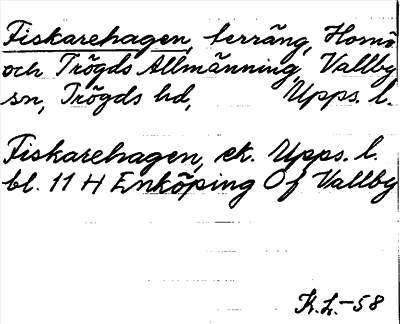 Fiskarehagen, terräng, Homö
och Trögds Allmänning, Vallby
sn, Trögds hd, Upps. l.
Fiskarehagen, ek. Upps. l.
bl. 11 H Enköping Of Vallby
K.L.-58